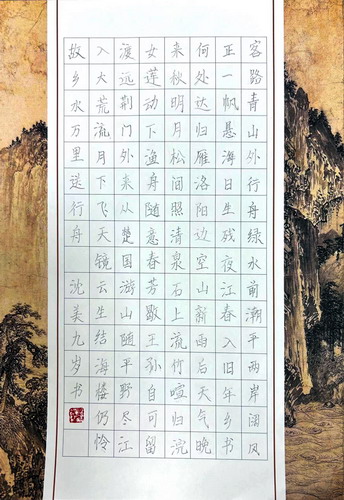 客路青山外行舟绿水前潮平两岸阔风
正一帆悬海日生残夜江春入旧年乡书
何处达归雁洛阳边空山新雨后天气晚
来秋明月松间照清泉石上流竹喧归浣
女莲动下渔舟随意春芳歇王孙自可留
渡远荆门外来从楚国游山随平野尽江
入大荒流月下飞天镜云生结海楼仍怜
故乡水万里送行舟 沈美九岁书